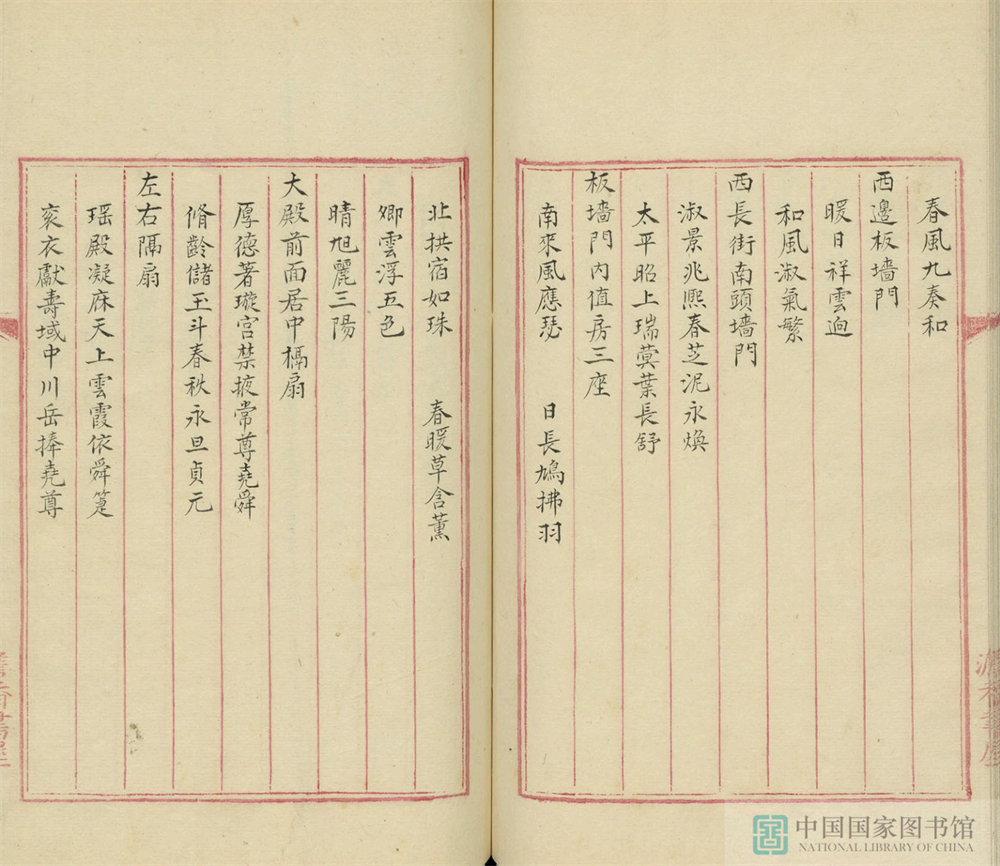 春風九奏和
西邊板墻門
暖日祥雲迥
和風淑氣繁
西長街南頭墻門
淑景兆熙春芝泥永煥
太平昭上瑞蓂葉長舒
板墻門內值房三座
南來風應瑟　日長鳩拂羽
北拱宿如珠　春暖草含薰
卿雲浮五色
晴旭麗三陽
大殿前面居中槅扇
厚德著璇宮禁掖常尊堯舜
脩齡儲玉斗春秋永旦貞元
左右隔扇
瑶殿凝庥天上雲霞依舜筵
衮衣獻壽域中川岳捧堯尊
中国国家图书馆
NATIONAL LIBRARY OF CHINA